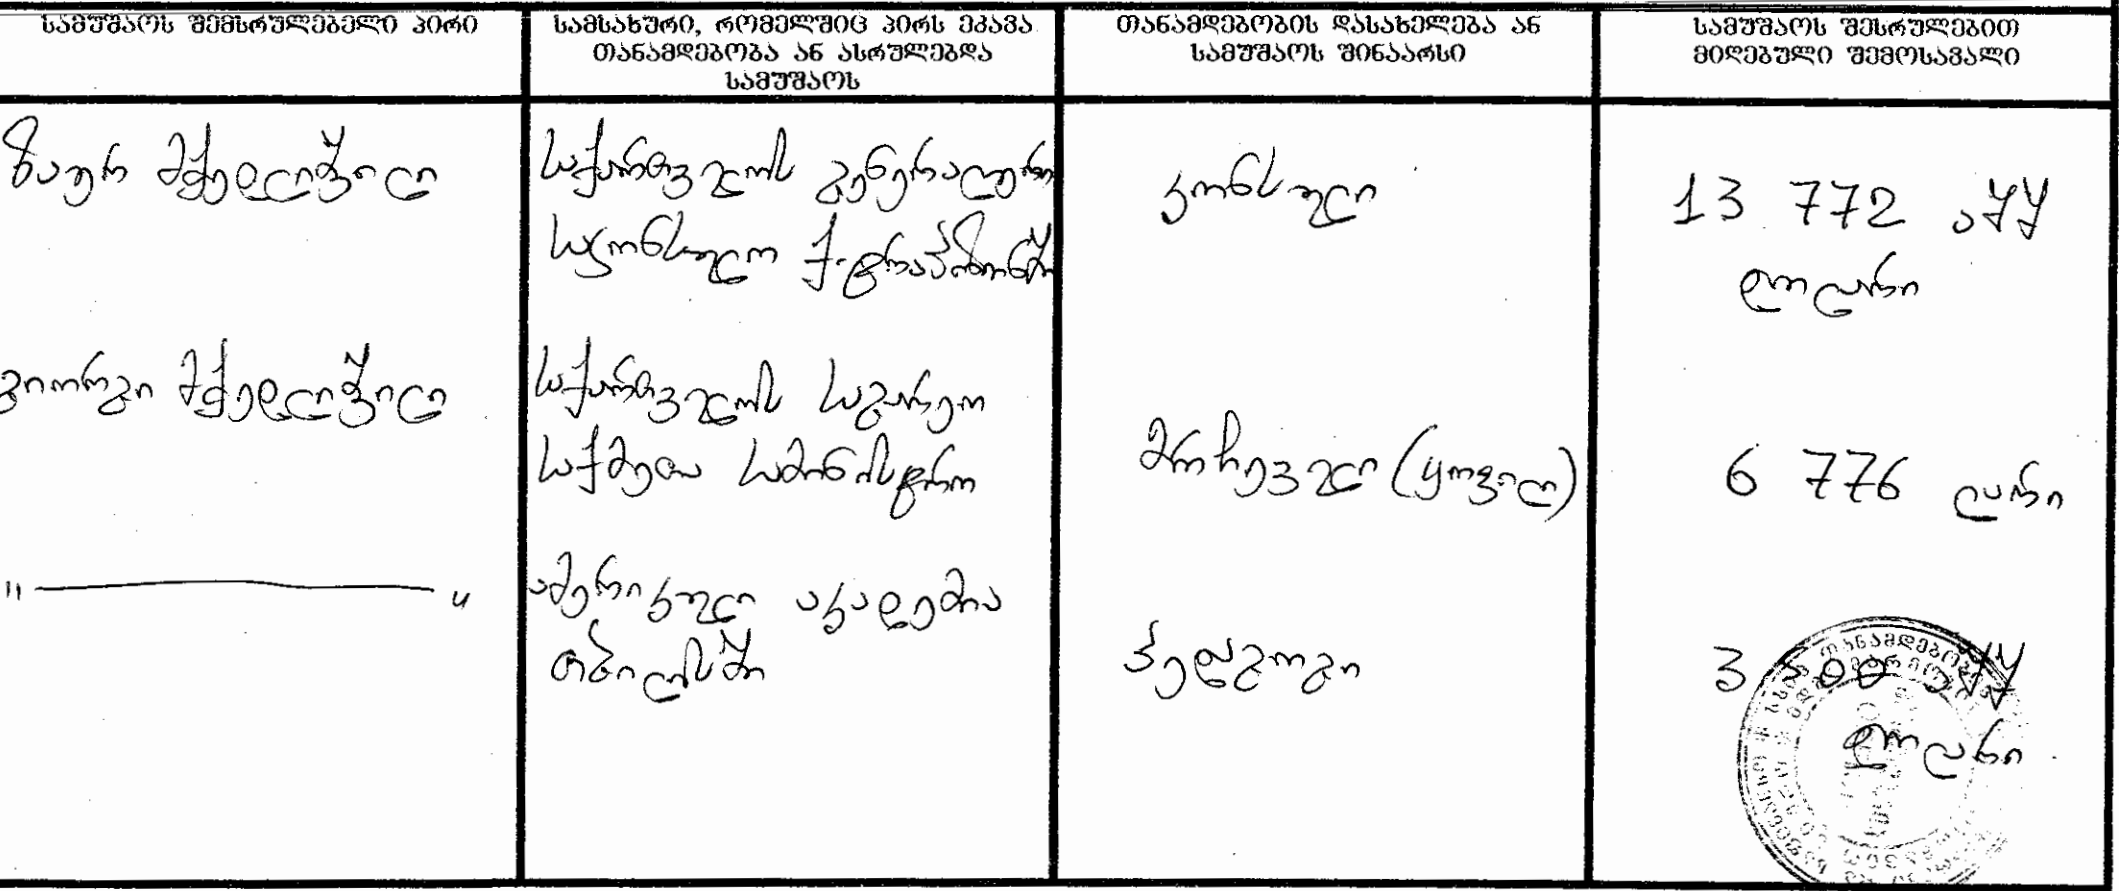 სამუშაოს შემსრულებელი პირი
სამსახური, რომელშიც პირს ეკავა
თანამდებობა ან ასრულებდა
სამუშაოს
თანამდებობის დასახელება ან
სამუშაოს შინაარსი
სამუშაოს შესრულებით
მიღებული შემოსავალი
ზაურ მჭედლიშვილი
საქართველოს გენერალური
საკონსულო ქ. ტრაპიზონში
კონსული
13 772 აშშ
დოლარი
გიორგი მჭედლიშვილი
საქართველოს საგარეო
საქმეთა სამინისტრო
მრჩეველი (ყოფილი)
6 776 ლარი
" ——— "
ამერიკული აკადემია
თბილისში
პედაგოგი
აშშ
დოლარი